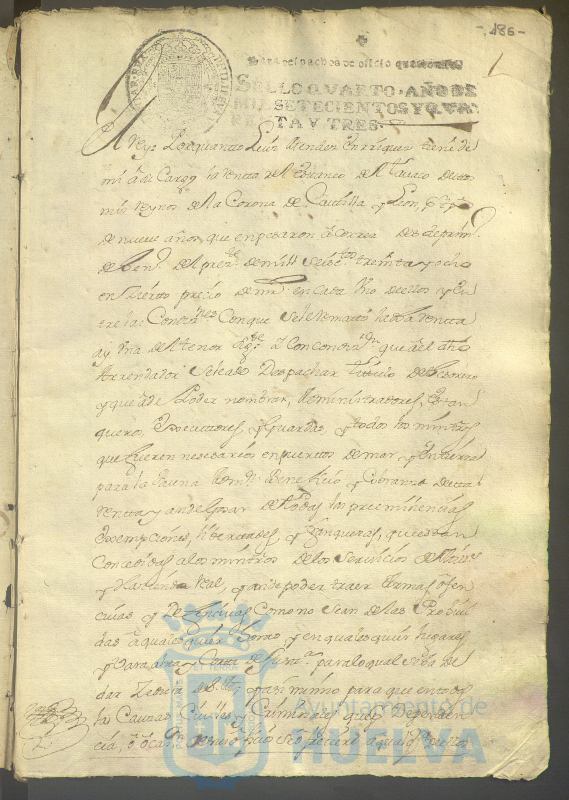 -186-
1
Para despachos de oficio
SELLO QVARTO. AÑO DE
MIL SETECIENTOS Y QVA-
RENTA Y TRES.
El Rey Por quanto Luis Mendez Enrriquez tiene de
mi a su Cargo la renta del estanco del tavaco de los
mis reynos de la Corona de Castilla y Leon
de nueve años que enpesaron a correr desde prim.
de Hen. del pres. de mill seis. treinta y ocho
en cierto precio de mrs en cada Uno de ellos y En
tre las Condi.nes Conque se le remato la dha renta
ay Una del tenor sig.te Con condicion que a el dho
Arrendador se le a de Despachar titulo de Thesorero
y que a de Poder nombrar, Administradores, Estan
queros, Executores y Guardas, y todos los ministros
que fueren nesesarios en puertos de mar, y en tierra
para la buena Adm.n Beneficio y Cobranza de esta
renta y an de Gosar de todas las preminencias
Exempciones, libertades, y franquesas, que estan
Concedidas a los ministros de los Servicios de Millones
y Hacienda Real, y an de poder traer Armas ofen
civas y defencivas Como no Sean de las Prohivi
das a quales quier Horas y en quales quier lugares
y Para atras y Corta de Jura para lo qual se a de
dar Zedula de S. Mg. y asi mismo para que en todas
las Causas Civiles y Criminales que Dependen
cia, o
Ayuntamiento de
HUELVA